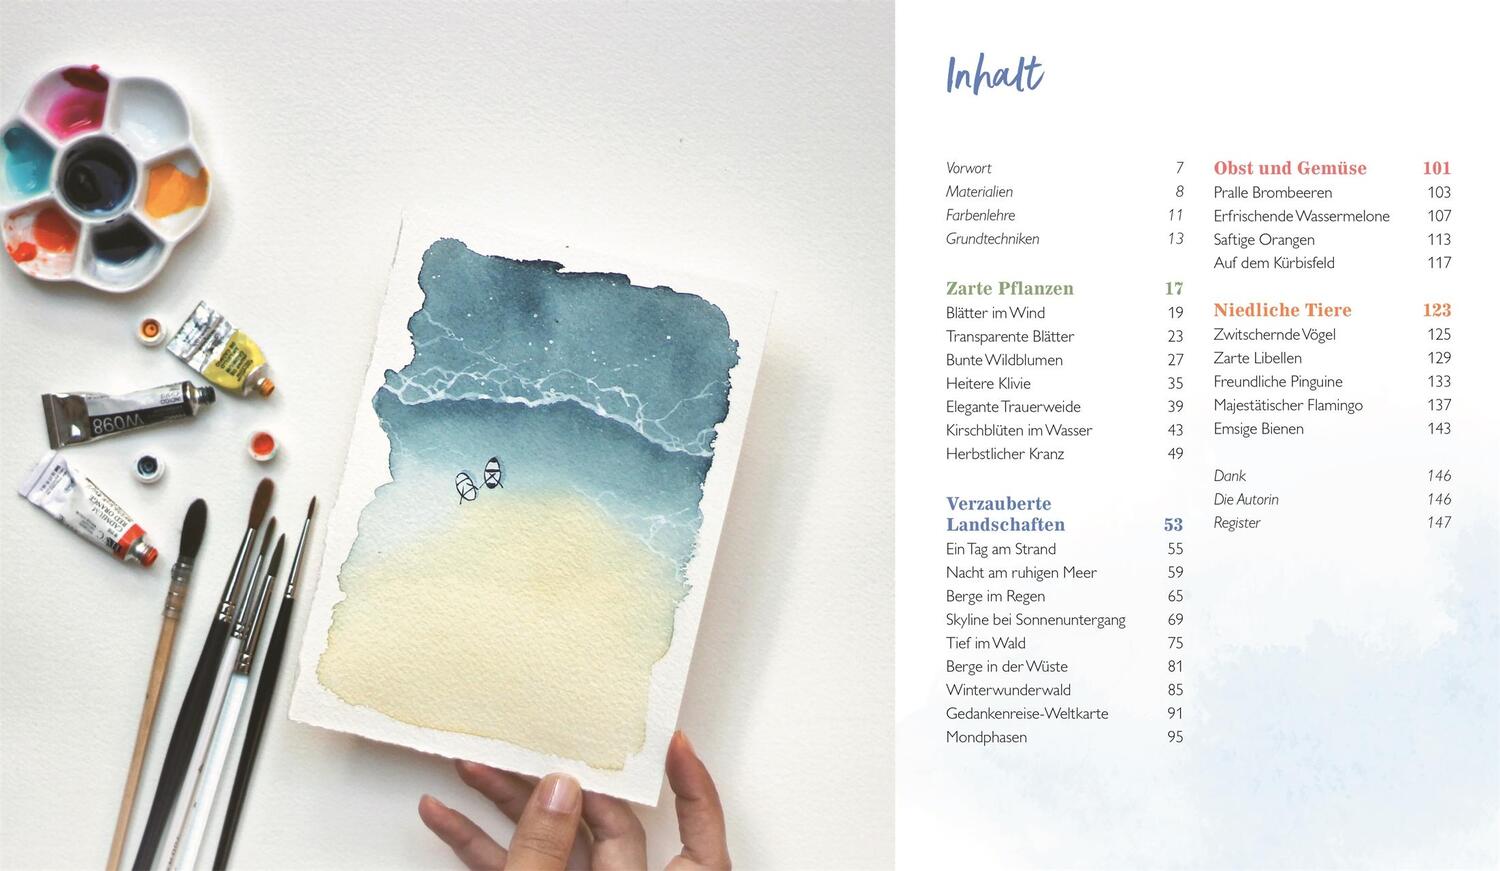 W098
INDIGO
CADMIUM
RED ORANGE
Inhalt
Vorwort 7
Materialien 8
Farbenlehre 11
Grundtechniken 13
Zarte Pflanzen 17
Blätter im Wind 19
Transparente Blätter 23
Bunte Wildblumen 27
Heitere Klivie 35
Elegante Trauerweide 39
Kirschblüten im Wasser 43
Herbstlicher Kranz 49
Verzauberte
Landschaften 53
Ein Tag am Strand 55
Nacht am ruhigen Meer 59
Berge im Regen 65
Skyline bei Sonnenuntergang 69
Tief im Wald 75
Berge in der Wüste 81
Winterwunderwald 85
Gedankenreise-Weltkarte 91
Mondphasen 95
Obst und Gemüse 101
Pralle Brombeeren 103
Erfrischende Wassermelone 107
Saftige Orangen 113
Auf dem Kürbisfeld 117
Niedliche Tiere 123
Zwitschernde Vögel 125
Zarte Libellen 129
Freundliche Pinguine 133
Majestätischer Flamingo 137
Emsige Bienen 143
Dank 146
Die Autorin 146
Register 147